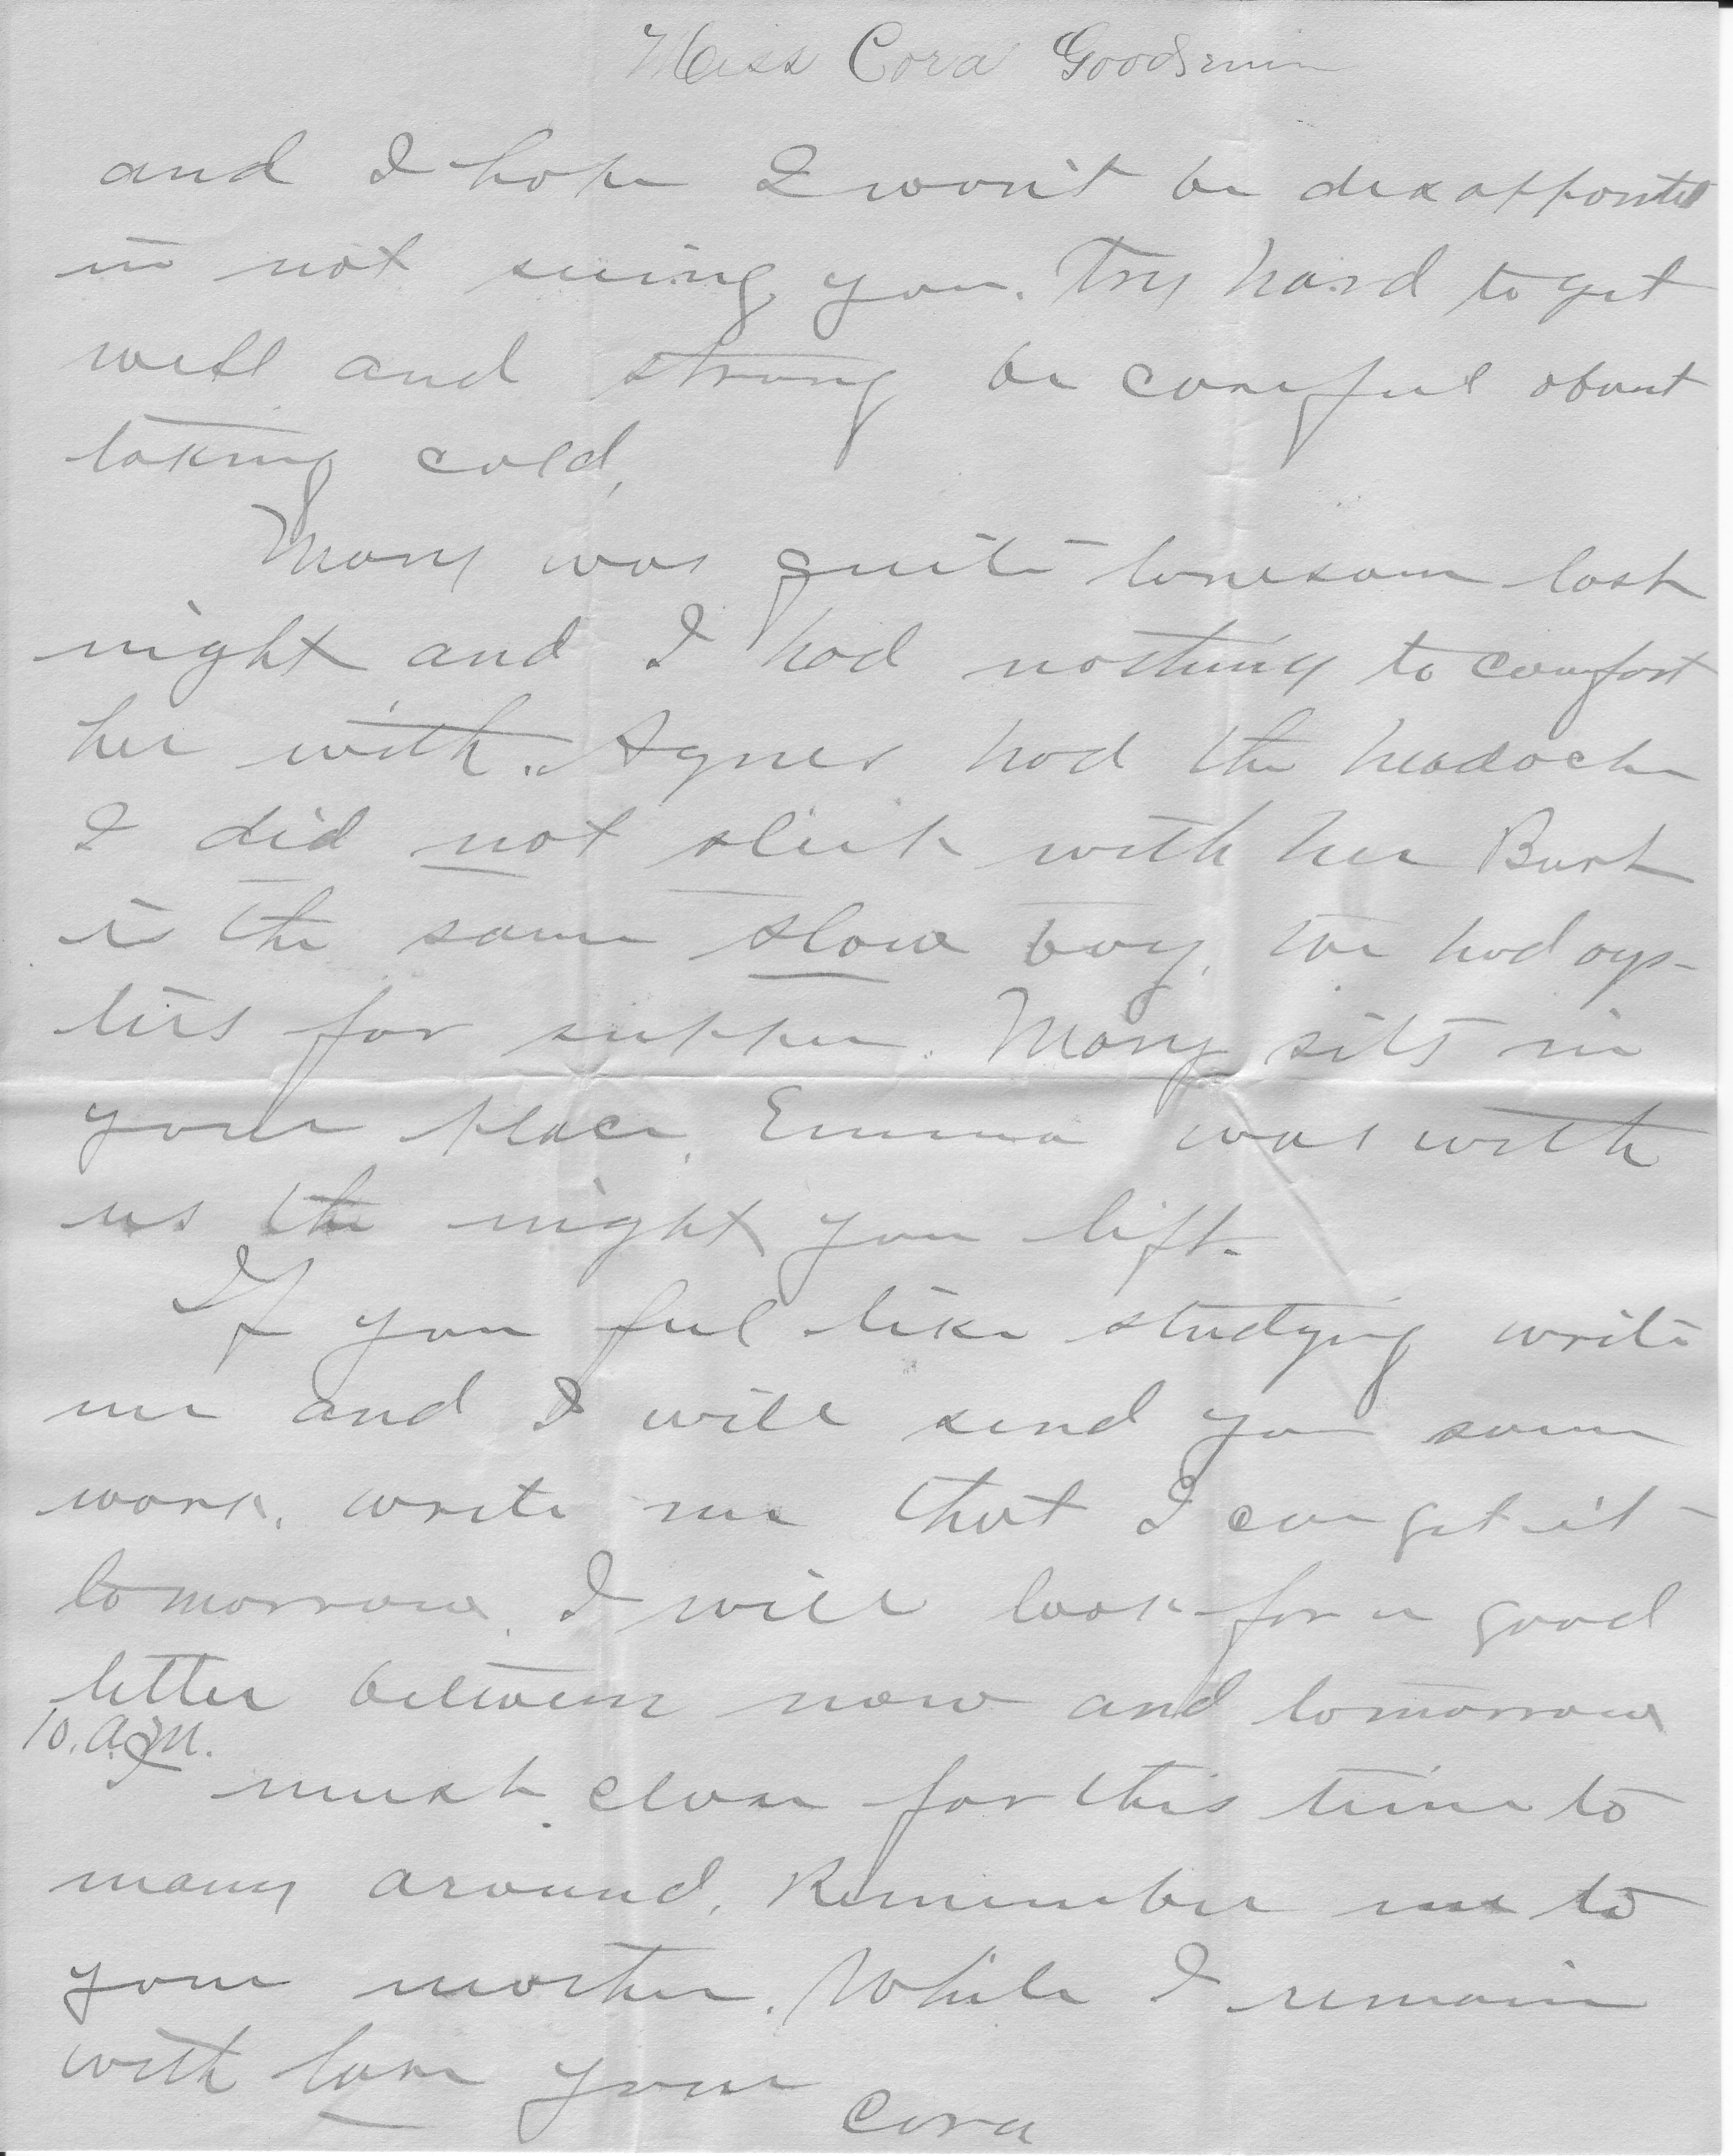 Miss Cora Goodwin
and I hope I won't be disappointed
in not seeing you. Try hard to get
well and strong be careful about
taking cold,
Mary was quite lonesome last
night and I had nothing to comfort
her with. Agnes had the headache
I did not sleep with her Burt
is the same slow boy, we had oys-
ters for supper. Mary sits in
your place. Emma was with
us the night you left.
If you feel like studying write
me and I will send you some
work. write me that I can get it
tomorrow. I will look for a good
letter between now and tomorrow
10. A.M.
I must close for this time to
many around. Remember me to
your mother. While I remain
with love your
Cora